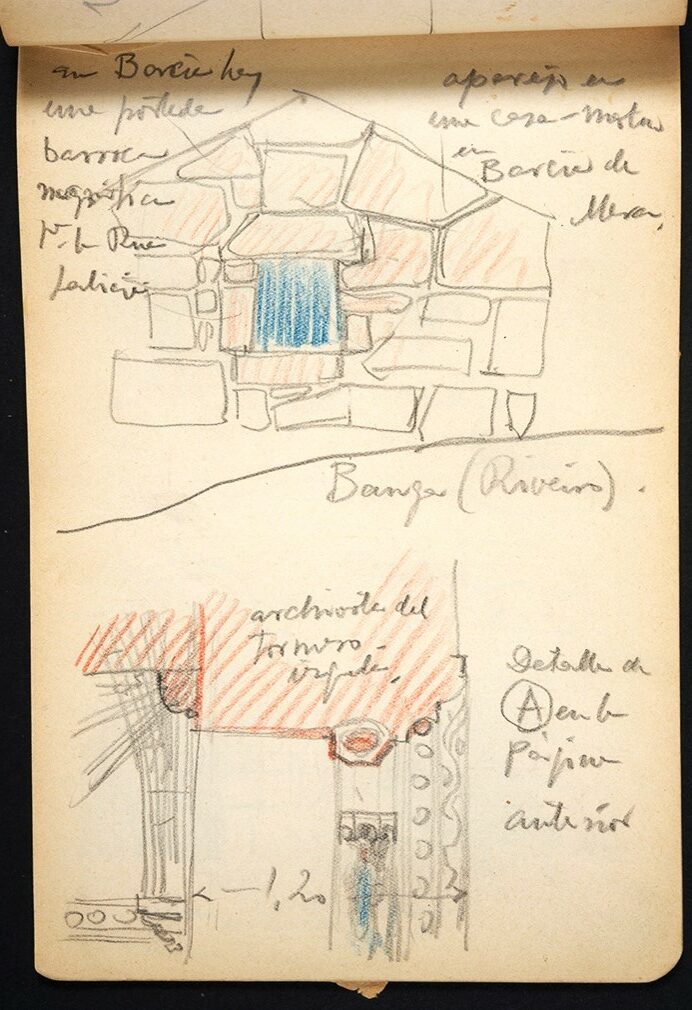 en Barcia hay
una portada
barroca
magnífica
aparejo en
una casa-
en Barcia de
Mera,
Banga (Riveiro).
archivolta del
tornero
Detalle de
A en la
página
anterior
1,20